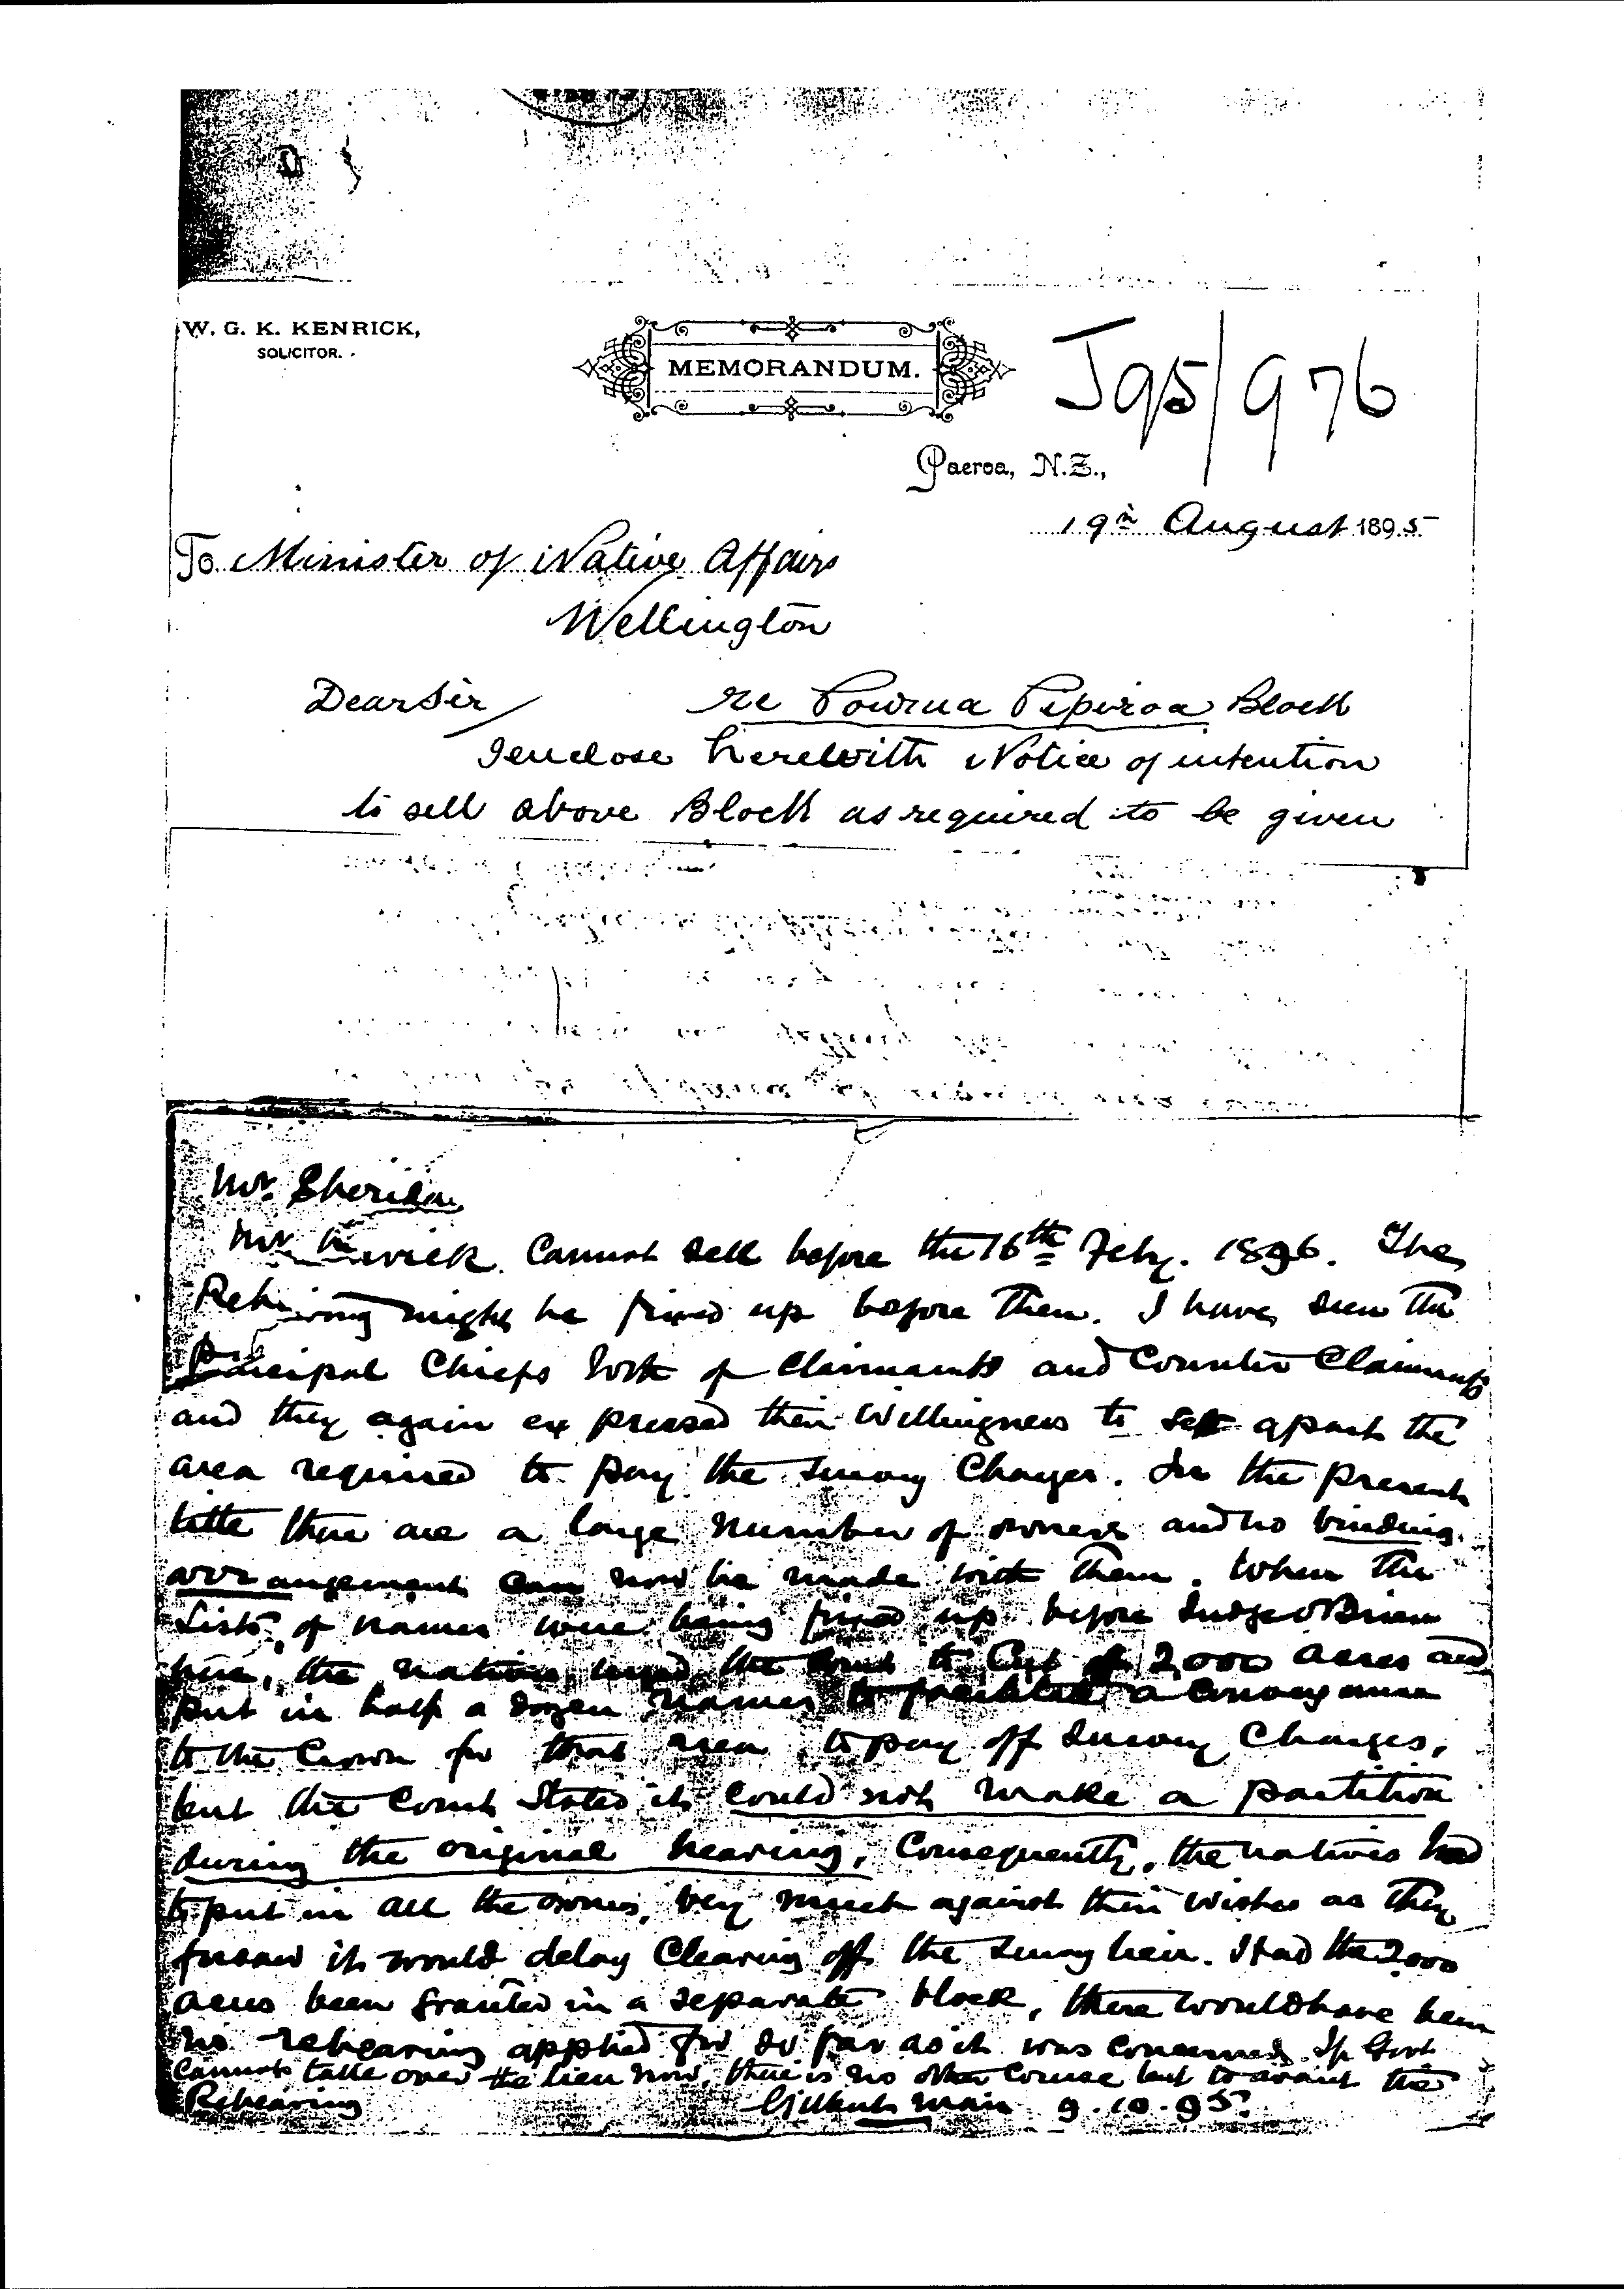 W. G. K. KENRICK,
SOLICITOR.
MEMORANDUM.
J95/976
Paeroa, N.Z.,
19th August 1895
To Minister of Native Affairs
Wellington
Dear Sir
re Powrua Pipiroa Block
I enclose herewith Notice of intention
to sell above Block as required to be given
Mr. Sheridan
Mr Kenrick Cannot sell before the 16th Feby. 1896. The
Rehearing might be fixed up before then. I have seen the
Principal Chiefs both of Claimants and Counter Claimants
and they again expressed their Willingness to set apart the
area required to pay the Survey Charges. In the present
title there are a large number of owners and no binding
arrangement can now be made with them. When the
Lists of names were being fixed up before Judge O'Brien
here, the natives urged the Court to Cut off 2,000 acres and
put in half a dozen names to facilitate a Conveyance
to the Crown for that area, to pay off Survey Charges,
but the Court Stated it could not make a partition
during the original hearing, Consequently, the natives had
to put in all the owners, very much against their wishes as they
foresaw it would delay Clearing off the Survey lien. Had the 2000
acres been granted in a separate block, there would have been
no rehearing applied for so far as it was concerned. If Govt
Cannot take over the lien now, there is no other Course but to await the
Rehearing
Gilbert Mair 9.10.95